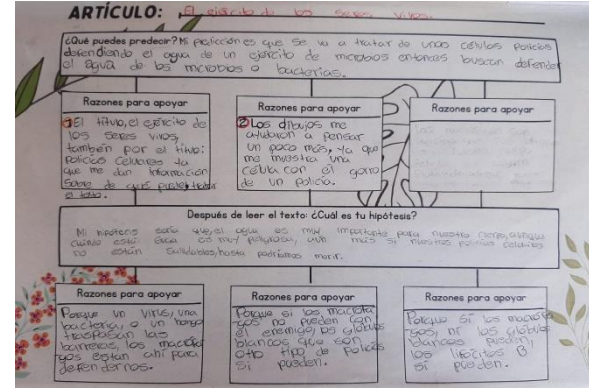 ARTÍCULO: El ejército de los seres vivos.
¿Qué puedes predecir? Mi predicción es que se va a tratar de unas células policías
defendiendo el agua de un ejército de microbios entonces buscan defender
el agua de los microbios o bacterias.
Razones para apoyar
1 El título, el ejército de
los seres vivos,
también por el título:
policías celulares ya
que me dan información
sobre de qué puede tratar
el texto.
Razones para apoyar
2 Los dibujos me
ayudaron a pensar
un poco más, ya que
me muestra una
célula con el gorro
de un policía.
Razones para apoyar
Después de leer el texto: ¿Cuál es tu hipótesis?
Mi hipótesis sería que, el agua es muy importante para nuestro cuerpo, aunque
cuando está es muy peligrosa, aun más si nuestros policías celulares
no están saludables, hasta podríamos morir.
Razones para apoyar
Porque un virus, una
bacteria, o un hongo
traspasan las
barreras, los macrófa
gos están ahí para
defendernos.
Razones para apoyar
Porque si los macrófa
gos no pueden con
el enemigo, los glóbulos
blancos que son
otro tipo de policías
si pueden.
Razones para apoyar
Porque si los macrófa
gos, ni los glóbulos
blancos pueden,
los lifocitos B
si pueden.